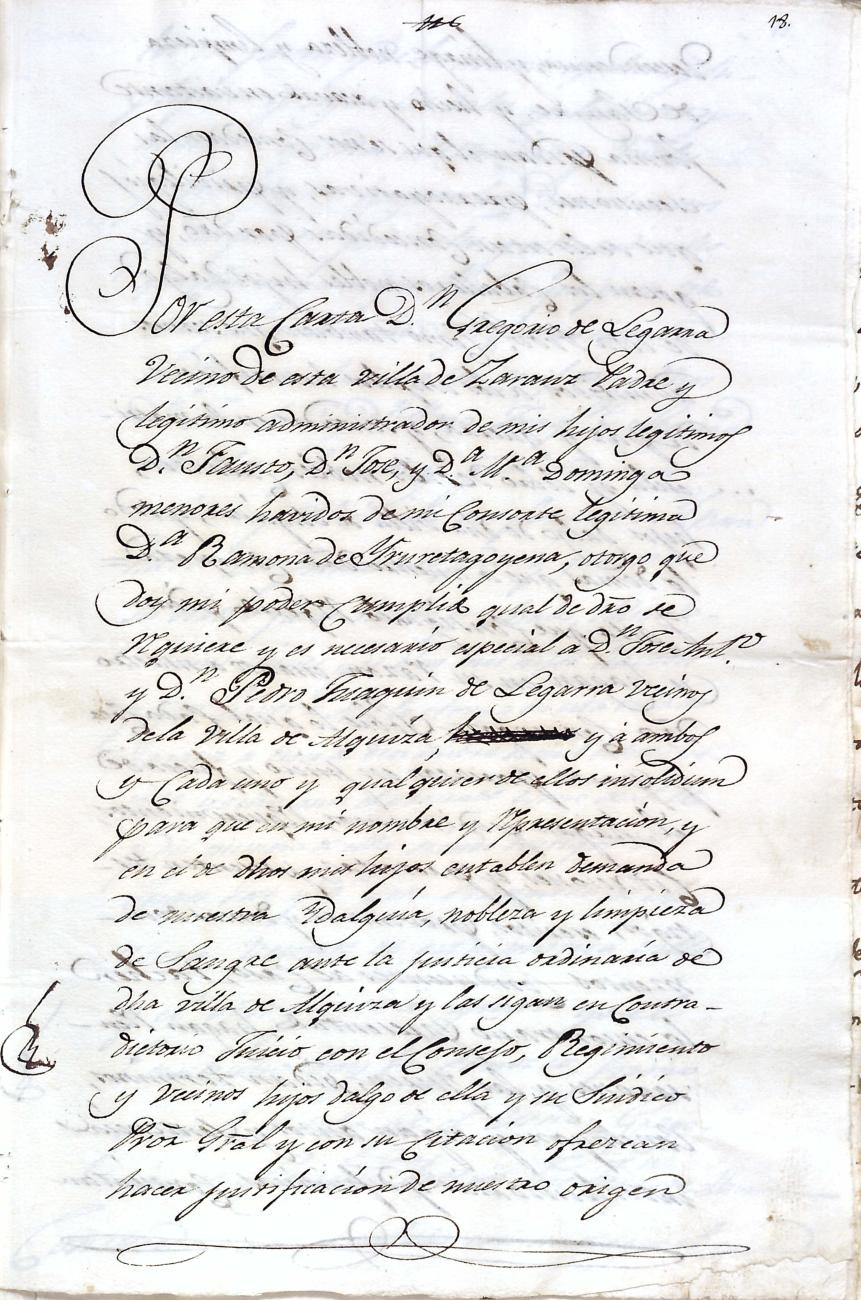 116
18.
Por esta Carta D.n Gregorio de Legarra
Vecino de esta villa de Zarauz Padre y
legitimo administrador de mis hijos legitimos
D.n Fausto, D.n Jose, y D.a M.a Dominga
menores havidos de mi Consorte legitima
D.a Ramona de Yruretagoyena, otorgo que
doy mi poder Cumplido qual de dro se
requiere y es necesario especial à D.n Jose Ant.o
y D.n Pedro Juaquin de Legarra vecinos
dela villa de Alquiza, y à ambos
y Cada uno y qualquier de ellos insolidum
para que en mi nombre y representacion, y
en el de dhos mis hijos entablen demanda
de nuestra Ydalguia, nobleza y limpieza
de Sangre ante la justicia ordinaria de
dha villa de Alquiza y las sigan en Contra-
dictorio Juicio con el Consejo, Regimiento
y vecinos hijos dalgo de ella y su Sindico
Pror Gral y con su Citacion ofrezcan
hacer justificacion de nuestro origen